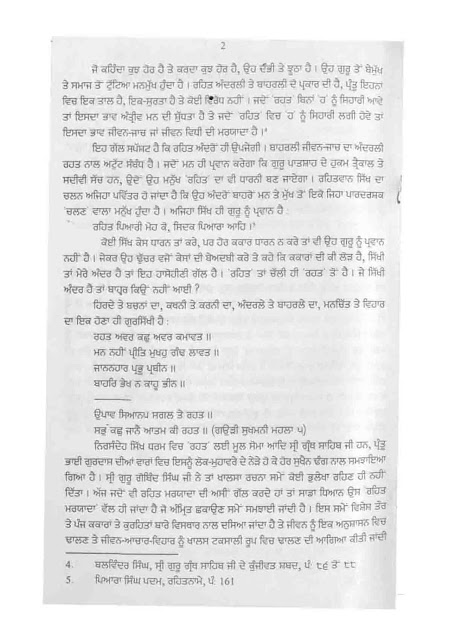 2
ਜੋ ਕਹਿੰਦਾ ਕੁਝ ਹੋਰ ਹੈ ਤੇ ਕਰਦਾ ਕੁਝ ਹੋਰ ਹੈ, ਉਹ ਦੰਭੀ ਤੇ ਝੂਠਾ ਹੈ। ਉਹ ਗੁਰੂ ਤੋਂ ਬੇਮੁੱਖ
ਤੇ ਸਮਾਜ ਤੋਂ ਟੁੱਟਿਆ ਮਨਮੁੱਖ ਹੁੰਦਾ ਹੈ। ਰਹਿਤ ਅੰਦਰਲੀ ਤੇ ਬਾਹਰਲੀ ਦੋ ਪ੍ਰਕਾਰ ਦੀ ਹੈ, ਪ੍ਰੰਤੂ ਇਹਨਾ
ਵਿਚ ਇਕ ਤਾਲ ਹੈ, ਇਕ-ਸੁਰਤਾ ਹੈ ਤੇ ਕੋਈ ਵਿਰੋਧ ਨਹੀਂ। ਜਦੋਂ 'ਰਹਤ' ਬਿਨਾਂ 'ਹ' ਨੂੰ ਸਿਹਾਰੀ ਆਵੇ
ਤਾਂ ਇਸਦਾ ਭਾਵ ਅੰਤ੍ਰੀਵ ਮਨ ਦੀ ਸ਼ੁੱਧਤਾ ਹੈ ਤੇ ਜਦੋਂ 'ਰਹਿਤ' ਵਿਚ 'ਹ' ਨੂੰ ਸਿਹਾਰੀ ਲਗੀ ਹੋਵੇ ਤਾਂ
ਇਸਦਾ ਭਾਵ ਜੀਵਨ-ਜਾਚ ਜਾਂ ਜੀਵਨ ਵਿਧੀ ਦੀ ਮਰਯਾਦਾ ਹੈ।⁴
ਇਹ ਗੱਲ ਸਪੱਸ਼ਟ ਹੈ ਕਿ ਰਹਿਤ ਅੰਦਰੋਂ ਹੀ ਉਪਜੇਗੀ। ਬਾਹਰਲੀ ਜੀਵਨ-ਜਾਚ ਦਾ ਅੰਦਰਲੀ
ਰਹਤ ਨਾਲ ਅਟੁੱਟ ਸੰਬੰਧ ਹੈ। ਜਦੋਂ ਮਨ ਹੀ ਪ੍ਰਵਾਨ ਕਰੇਗਾ ਕਿ ਗੁਰੂ ਪਾਤਸ਼ਾਹ ਦੇ ਹੁਕਮ ਤ੍ਰੈਕਾਲ ਤੇ
ਸਦੀਵੀ ਸੱਚ ਹਨ, ਉਦੋਂ ਉਹ ਮਨੁੱਖ 'ਰਹਿਤ' ਦਾ ਵੀ ਧਾਰਨੀ ਬਣ ਜਾਏਗਾ। ਰਹਿਤਵਾਨ ਸਿੱਖ ਦਾ
ਚਲਨ ਅਜਿਹਾ ਪਵਿੱਤਰ ਹੋ ਜਾਂਦਾ ਹੈ ਕਿ ਉਹ ਅੰਦਰੋਂ ਬਾਹਰੋਂ ਮਨ ਤੇ ਮੁੱਖ ਤੋਂ ਇਕੋ ਜਿਹਾ ਪਾਰਦਰਸ਼ਕ
'ਚਲਣ' ਵਾਲਾ ਮਨੁੱਖ ਹੁੰਦਾ ਹੈ। ਅਜਿਹਾ ਸਿੱਖ ਹੀ ਗੁਰੂ ਨੂੰ ਪ੍ਰਵਾਨ ਹੈ :
ਰਹਿਤ ਪਿਆਰੀ ਮੋਹ ਕੋ, ਸਿਦਕ ਪਿਆਰਾ ਆਹਿ।⁵
ਕੋਈ ਸਿੱਖ ਕੇਸ ਧਾਰਨ ਤਾਂ ਕਰੇ, ਪਰ ਹੋਰ ਕਕਾਰ ਧਾਰਨ ਨ ਕਰੇ ਤਾਂ ਵੀ ਉਹ ਗੁਰੂ ਨੂੰ ਪ੍ਰਵਾਨ
ਨਹੀਂ ਹੈ। ਜੇਕਰ ਉਹ ਢੁੱਚਰ ਵਜੋਂ ਕੇਸਾਂ ਦੀ ਬੇਅਦਬੀ ਕਰੇ ਤੇ ਕਹੇ ਕਿ ਕਕਾਰਾਂ ਦੀ ਕੀ ਲੋੜ ਹੈ, ਸਿੱਖੀ
ਤਾਂ ਮੇਰੇ ਅੰਦਰ ਹੈ ਤਾਂ ਇਹ ਹਾਸੋਹੀਣੀ ਗੱਲ ਹੈ। 'ਰਹਿਤ' ਤਾਂ ਚੱਲੀ ਹੀ 'ਰਹਤ' ਤੋਂ ਹੈ। ਜੇ ਸਿੱਖੀ
ਅੰਦਰ ਹੈ ਤਾਂ ਬਾਹਰ ਕਿਉਂ ਨਹੀਂ ਆਈ ?
ਹਿਰਦੇ ਤੇ ਬਚਨਾਂ ਦਾ, ਕਥਨੀ ਤੇ ਕਰਨੀ ਦਾ, ਅੰਦਰਲੇ ਤੇ ਬਾਹਰਲੇ ਦਾ, ਮਨਚਿੱਤ ਤੇ ਵਿਹਾਰ
ਦਾ ਇਕ ਹੋਣਾ ਹੀ ਗੁਰਸਿੱਖੀ ਹੈ :
ਰਹਤ ਅਵਰ ਕਛੁ ਅਵਰ ਕਮਾਵਤ॥
ਮਨ ਨਹੀਂ ਪ੍ਰੀਤਿ ਮੁਖਹੁ ਗੰਢ ਲਾਵਤ॥
ਜਾਨਨਹਾਰ ਪ੍ਰਭੂ ਪ੍ਰਬੀਨ॥
ਬਾਹਰਿ ਭੇਖ ਨ ਕਾਹੂ ਭੀਨ॥
ਉਪਾਵ ਸਿਆਨਪ ਸਗਲ ਤੇ ਰਹਤ॥
ਸਭੁ ਕਛੁ ਜਾਨੈ ਆਤਮ ਕੀ ਰਹਤ॥ (ਗਉੜੀ ਸੁਖਮਨੀ ਮਹਲਾ ੫)
ਨਿਰਸੰਦੇਹ ਸਿੱਖ ਧਰਮ ਵਿਚ 'ਰਹਤ' ਲਈ ਮੂਲ ਸੋਮਾ ਆਦਿ ਸ੍ਰੀ ਗ੍ਰੰਥ ਸਾਹਿਬ ਜੀ ਹਨ, ਪ੍ਰੰਤੂ
ਭਾਈ ਗੁਰਦਾਸ ਦੀਆਂ ਵਾਰਾਂ ਵਿਚ ਇਸਨੂੰ ਲੋਕ-ਮੁਹਾਵਰੇ ਦੇ ਨੇੜੇ ਹੋ ਕੇ ਹੋਰ ਸੁਖੈਨ ਢੰਗ ਨਾਲ ਸਮਝਾਇਆ
ਗਿਆ ਹੈ। ਸ੍ਰੀ ਗੁਰੂ ਗੋਬਿੰਦ ਸਿੰਘ ਜੀ ਨੇ ਤਾਂ ਖ਼ਾਲਸਾ ਰਚਨਾ ਸਮੇਂ ਕੋਈ ਭੁਲੇਖਾ ਰਹਿਣ ਹੀ ਨਹੀਂ
ਦਿੱਤਾ। ਅੱਜ ਜਦੋਂ ਵੀ ਰਹਿਤ ਮਰਯਾਦਾ ਦੀ ਅਸੀਂ ਗੱਲ ਕਰਦੇ ਹਾਂ ਤਾਂ ਸਾਡਾ ਧਿਆਨ ਉਸ 'ਰਹਿਤ
ਮਰਯਾਦਾ' ਵੱਲ ਹੀ ਜਾਂਦਾ ਹੈ ਜੋ ਅੰਮ੍ਰਿਤ ਛਕਾਉਣ ਸਮੇਂ ਸਮਝਾਈ ਜਾਂਦੀ ਹੈ। ਇਸ ਸਮੇਂ ਵਿਸ਼ੇਸ਼ ਤੌਰ
ਤੇ ਪੰਜ ਕਕਾਰਾਂ ਤੇ ਕੁਰਹਿਤਾਂ ਬਾਰੇ ਵਿਸਥਾਰ ਨਾਲ ਦਸਿਆ ਜਾਂਦਾ ਹੈ ਤੇ ਜੀਵਨ ਨੂੰ ਇਕ ਅਨੁਸ਼ਾਸਨ ਵਿਚ
ਢਾਲਣ ਤੇ ਜੀਵਨ-ਆਚਾਰ-ਵਿਹਾਰ ਨੂੰ ਖ਼ਾਲਸ ਟਕਸਾਲੀ ਰੂਪ ਵਿਚ ਢਾਲਣ ਦੀ ਆਗਿਆ ਕੀਤੀ ਜਾਂਦੀ
4. ਬਲਵਿੰਦਰ ਸਿੰਘ, ਸ੍ਰੀ ਗੁਰੂ ਗ੍ਰੰਥ ਸਾਹਿਬ ਜੀ ਦੇ ਕੁੰਜੀਵਤ ਸ਼ਬਦ, ਪੰ: ੮੬ ਤੋਂ ੮੮
5. ਪਿਆਰਾ ਸਿੰਘ ਪਦਮ, ਰਹਿਤਨਾਮੇ, ਪੰ: 161